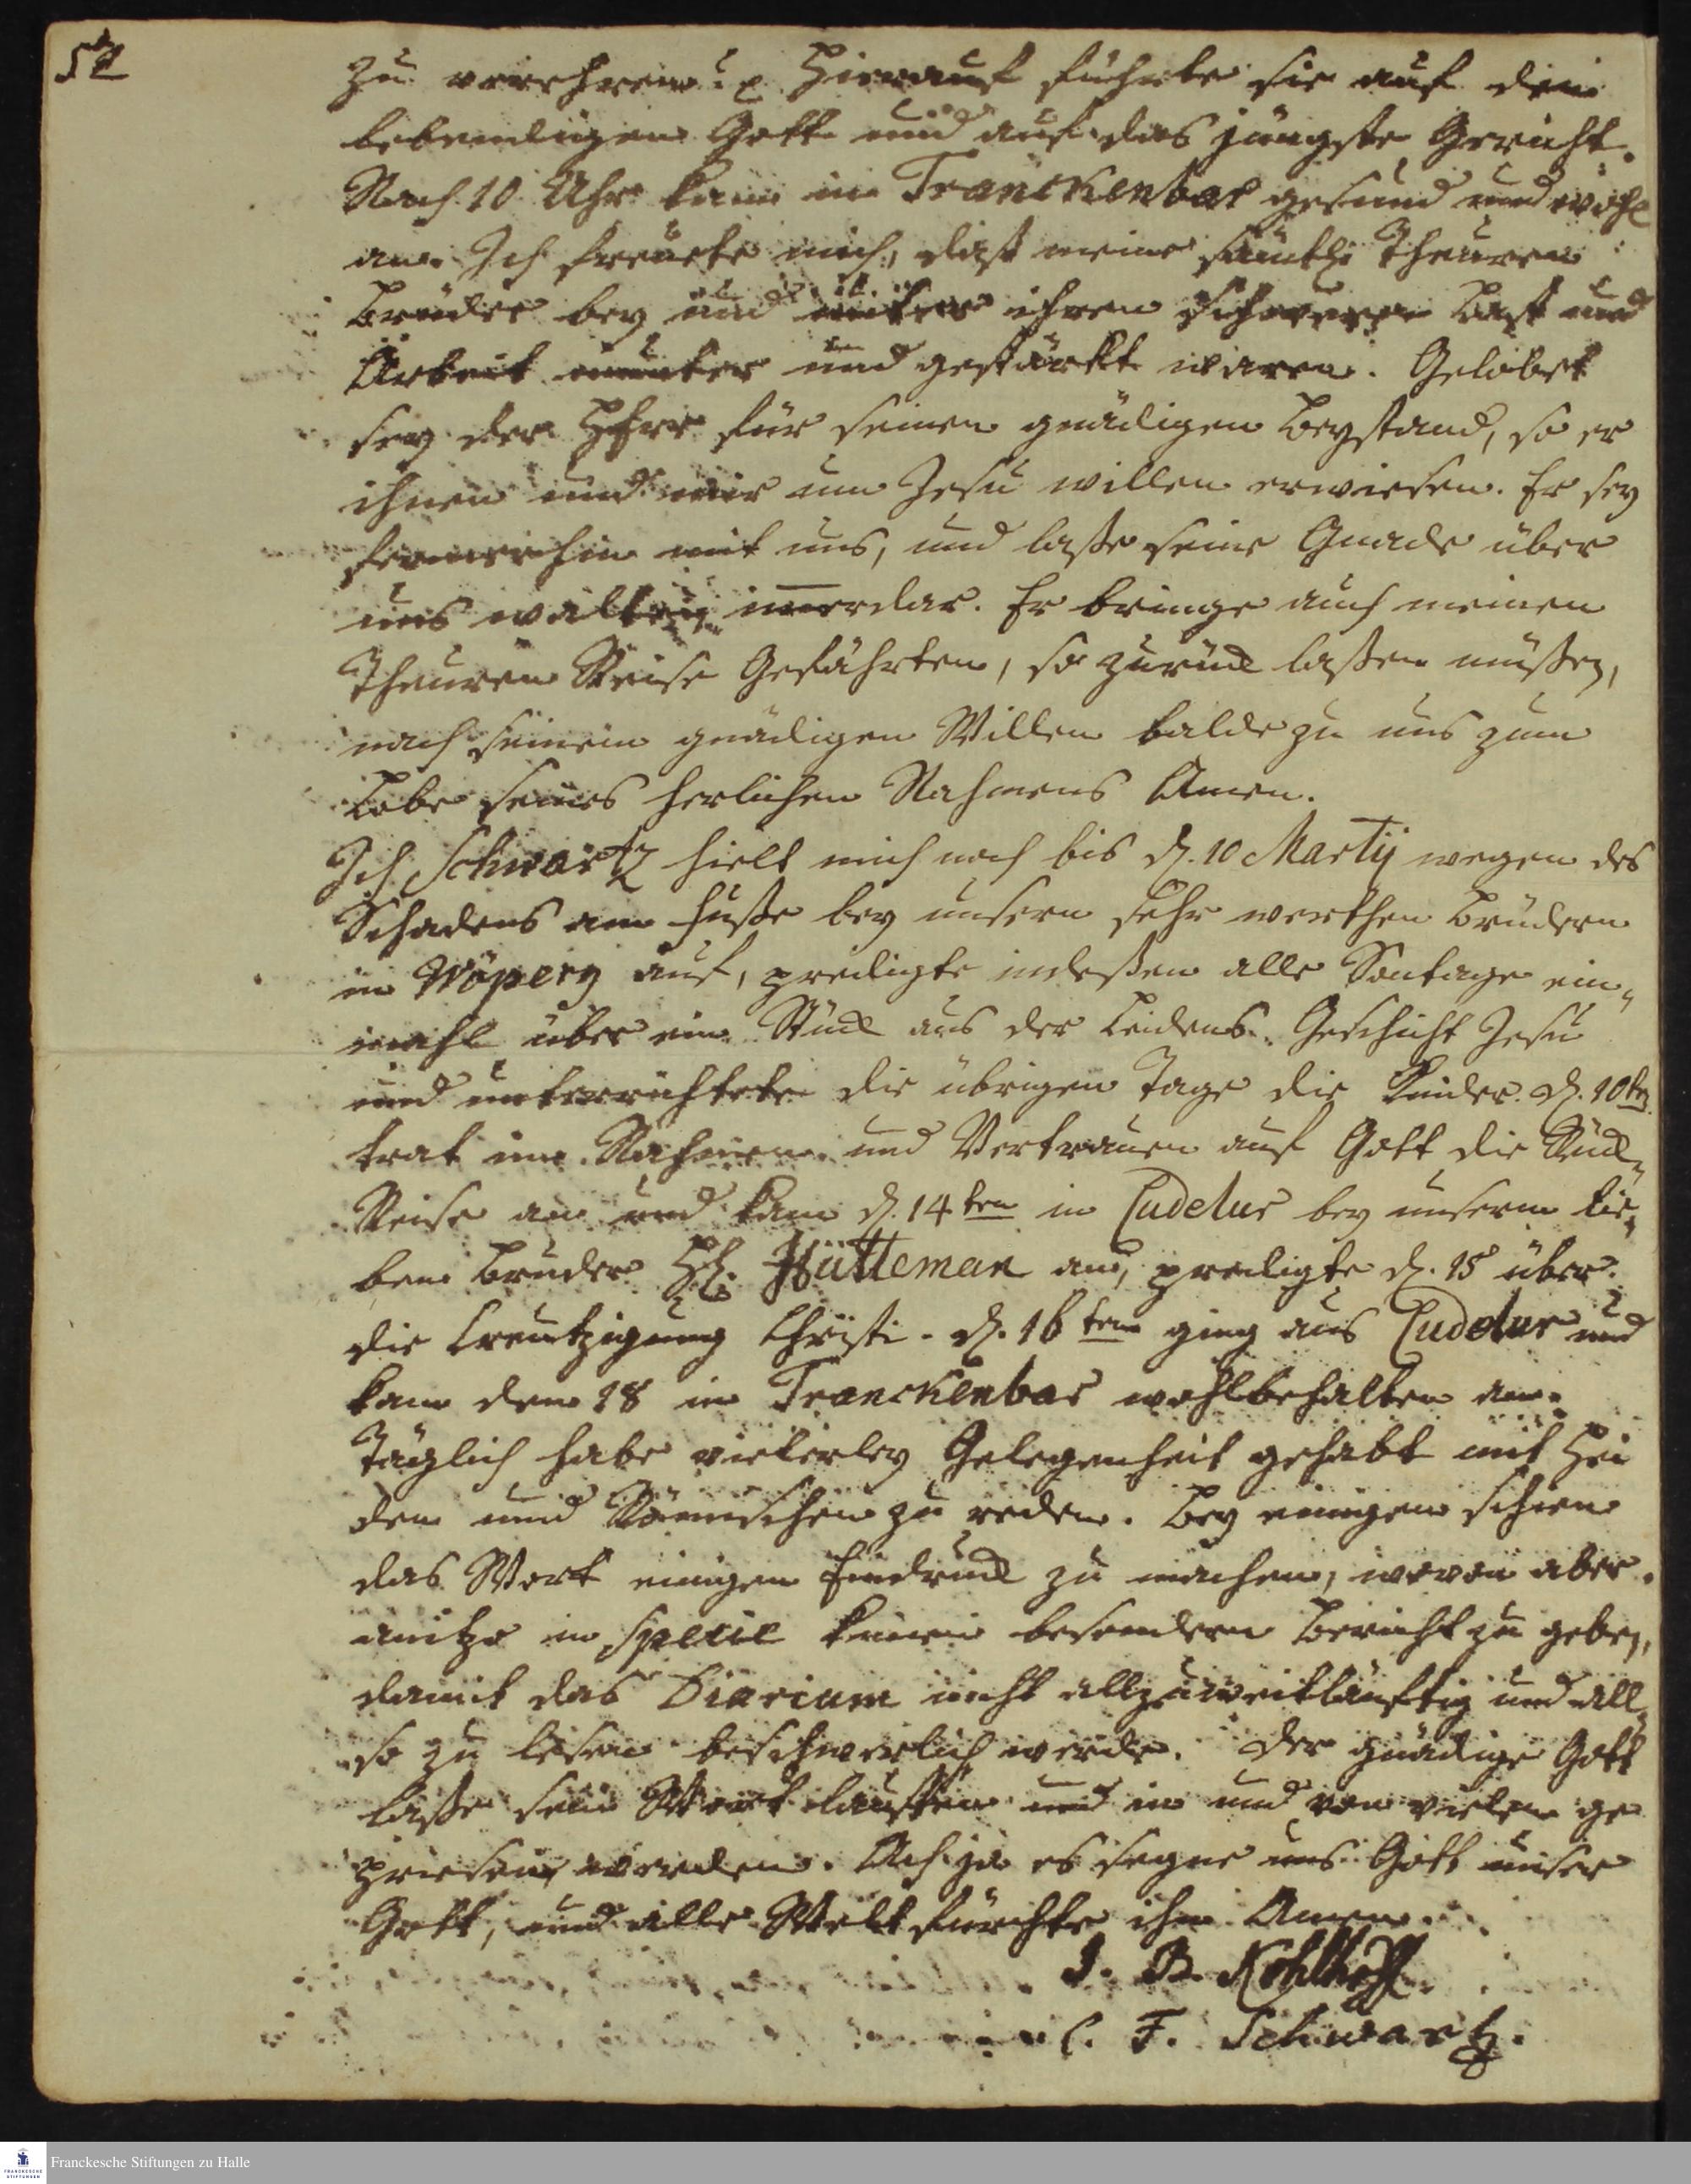 52
zu verehren? p. Hierauf führte sie auf den
lebendigen Gott und auf das jüngste Gericht.
Nach 10 Uhr kam in Tranckenbar gesund und wohl
an. Ich freuete mich, daß meine sämtl. Theuren
Brüder bey und unter ihren schweren Last und
Arbeit munter und gestärkt waren. Gelobet
sey der HErr für seinen gnädigen Beystand, so er
ihnen und mir um Jesu willen erwiesen. Er sey
fernerhin mit uns, und laße seine Gnade über
uns walten imerdar. Er bringe auch meinen
Theuren Reise Gefährten, so zurück laßen müßen,
nach seinem gnädigen Willen balde zu uns zum
Lobe seines herlichen Nahmens Amen.
Ich Schwartz hielt mich noch bis d. 10 Martij wegen des
Schadens am Fuße bey unsern sehr werthen Brüdern
in Wöpery auf, predigte indeßen alle Sontage ein„
mahl über ein Stück aus der Leidens Geschicht Jesu
und unterrichtete die übrigen Tage die Kinder. d. 10ten
trat im Nahmen und Vertrauen auf Gott die Rück„
Reise an und kam d. 14ten in Cudelur bey unserm lie„
ben Bruder H. Hütteman an, predigte d. 15 über
die Creutzigung Christi. d. 16ten ging aus Cudelur und
kam den 18 in Tranckenbar wohlbehalten an.
Täglich habe vielerley Gelegenheit gehabt mit Hei
den und Römischen zu reden. Bey einigen schien
das Wort einigen Eindruck zu machen, wovon aber
anitzo in specie keinen besondern Bericht zu geben,
damit das Diarium nicht allzuweitläuftig und all
so zu lesen beschwerlich werde. Der gnädige Gott
laße sein Wort lauffen und in und von vielen ge
priesen werden. Ach ja es segne uns Gott unser
Gott, und alle Welt fürchte ihn Amen.
J. B. Kohlhoff.
C. F. Schwartz.
Franckesche Stiftungen zu Halle
FRANCKESCHE STIFTUNGEN